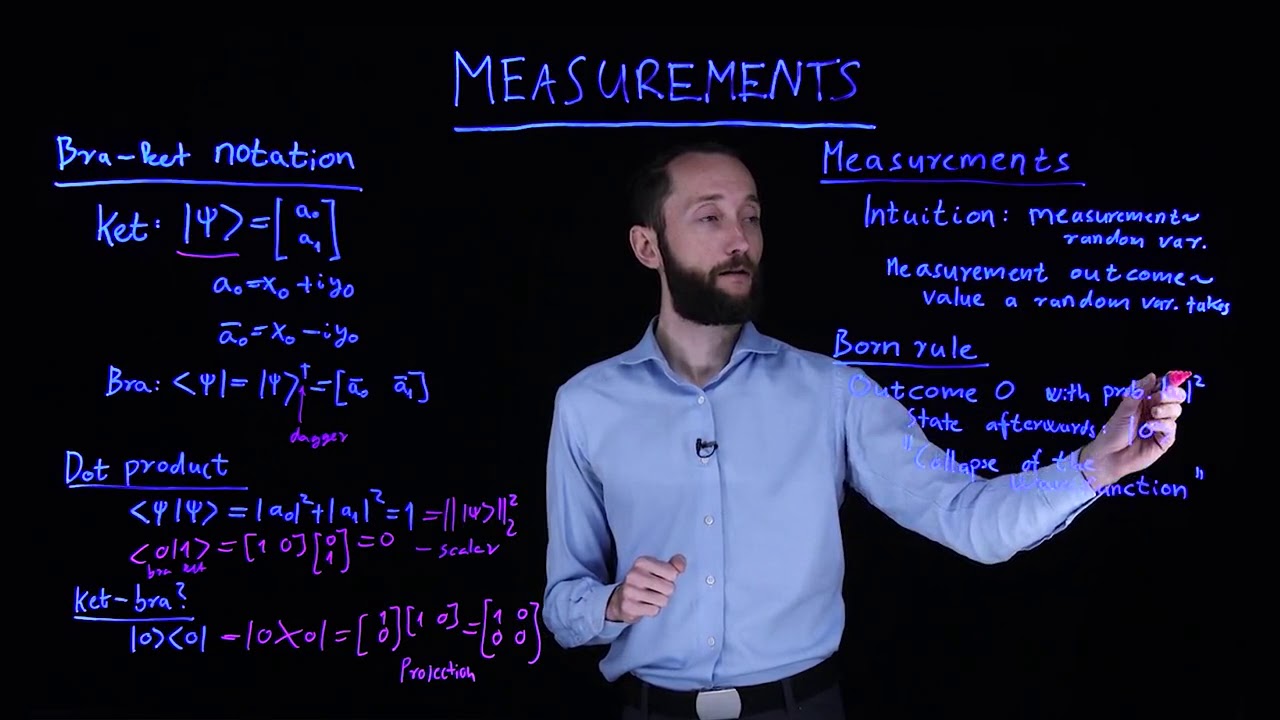 MEASUREMENTS
Bra-ket notation
Ket: |Ψ> = [a₀ a₁]
a₀ = x₀ + iy₀
ā₀ = x₀ - iy₀
Bra: <Ψ| = |Ψ>† = [ā₀ ā₁]
dagger
Dot product
<Ψ|Ψ> = |a₀|² + |a₁|² = 1 = || |Ψ> ||₂²
<0|1> = [1 0][0 1] = 0 - scaler
bra ket
Ket-bra?
|0><0| - |0><0| = [1 0][1 0] = [1 0 0 0]
Projection
Measurements
Intuition: measurement~
random var.
Measurement outcome~
value a random var. takes
Born rule
Outcome 0 with prob.
State afterwards:
"Collapse of the
wave function"